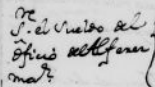 re
S. el sueldo del
officio de Alferez
mar.